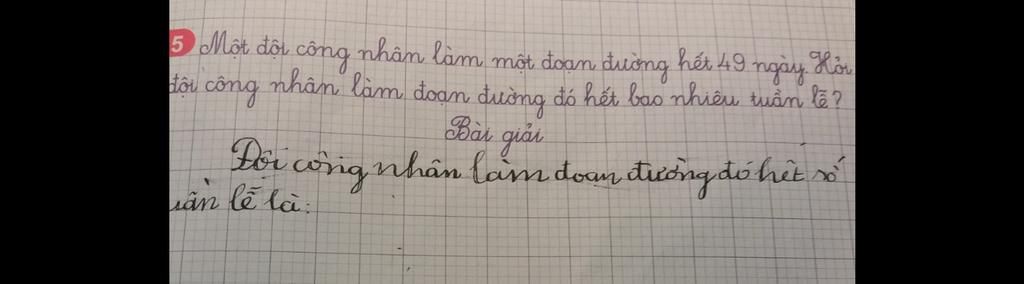 5 Một đội công nhân làm một đoạn đường hết 49 ngày. Hỏi
đội công nhân làm đoạn đường đó hết bao nhiêu tuần lễ?
Bài giải
Đội công nhân làm đoạn đường đó hết số
uần lễ là: